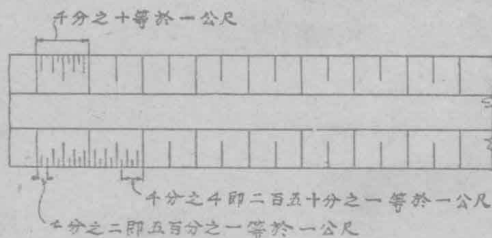 千分之十等於一公尺
千分之4即二百五十分之一等於一公尺
千分之二即五百分之一等於一公尺